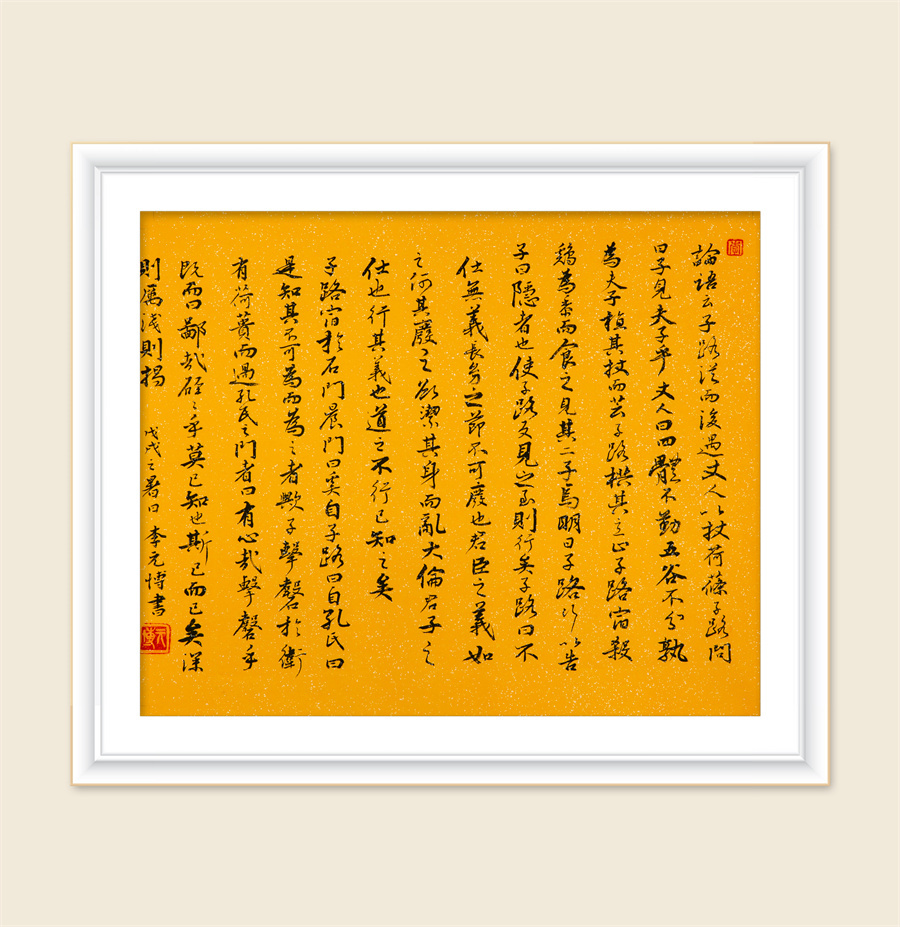 論語云子路從而後遇丈人以杖荷蓧子路問
曰子見夫子乎丈人曰四體不勤五谷不分孰
為夫子植其杖而芸子路拱其立止子路宿殺
鷄為黍而食之見其二子焉明日子路行以告
子曰隱者也使子路反見之至則行矣子路曰不
仕無義長幼之節不可廢也君臣之義如
之何其廢之欲潔其身而亂大倫君子之
仕也行其義也道之不行已知之矣
子路宿於石門晨門曰奚自子路曰自孔氏曰
是知其不可為而為之者歟子擊磬於衛
有荷蕢而過孔氏之門者曰有心哉擊磬乎
既而曰鄙哉硜〻乎莫已知也斯已而已矣深
則厲淺則揭
戊戌之暑日李元博書
元博